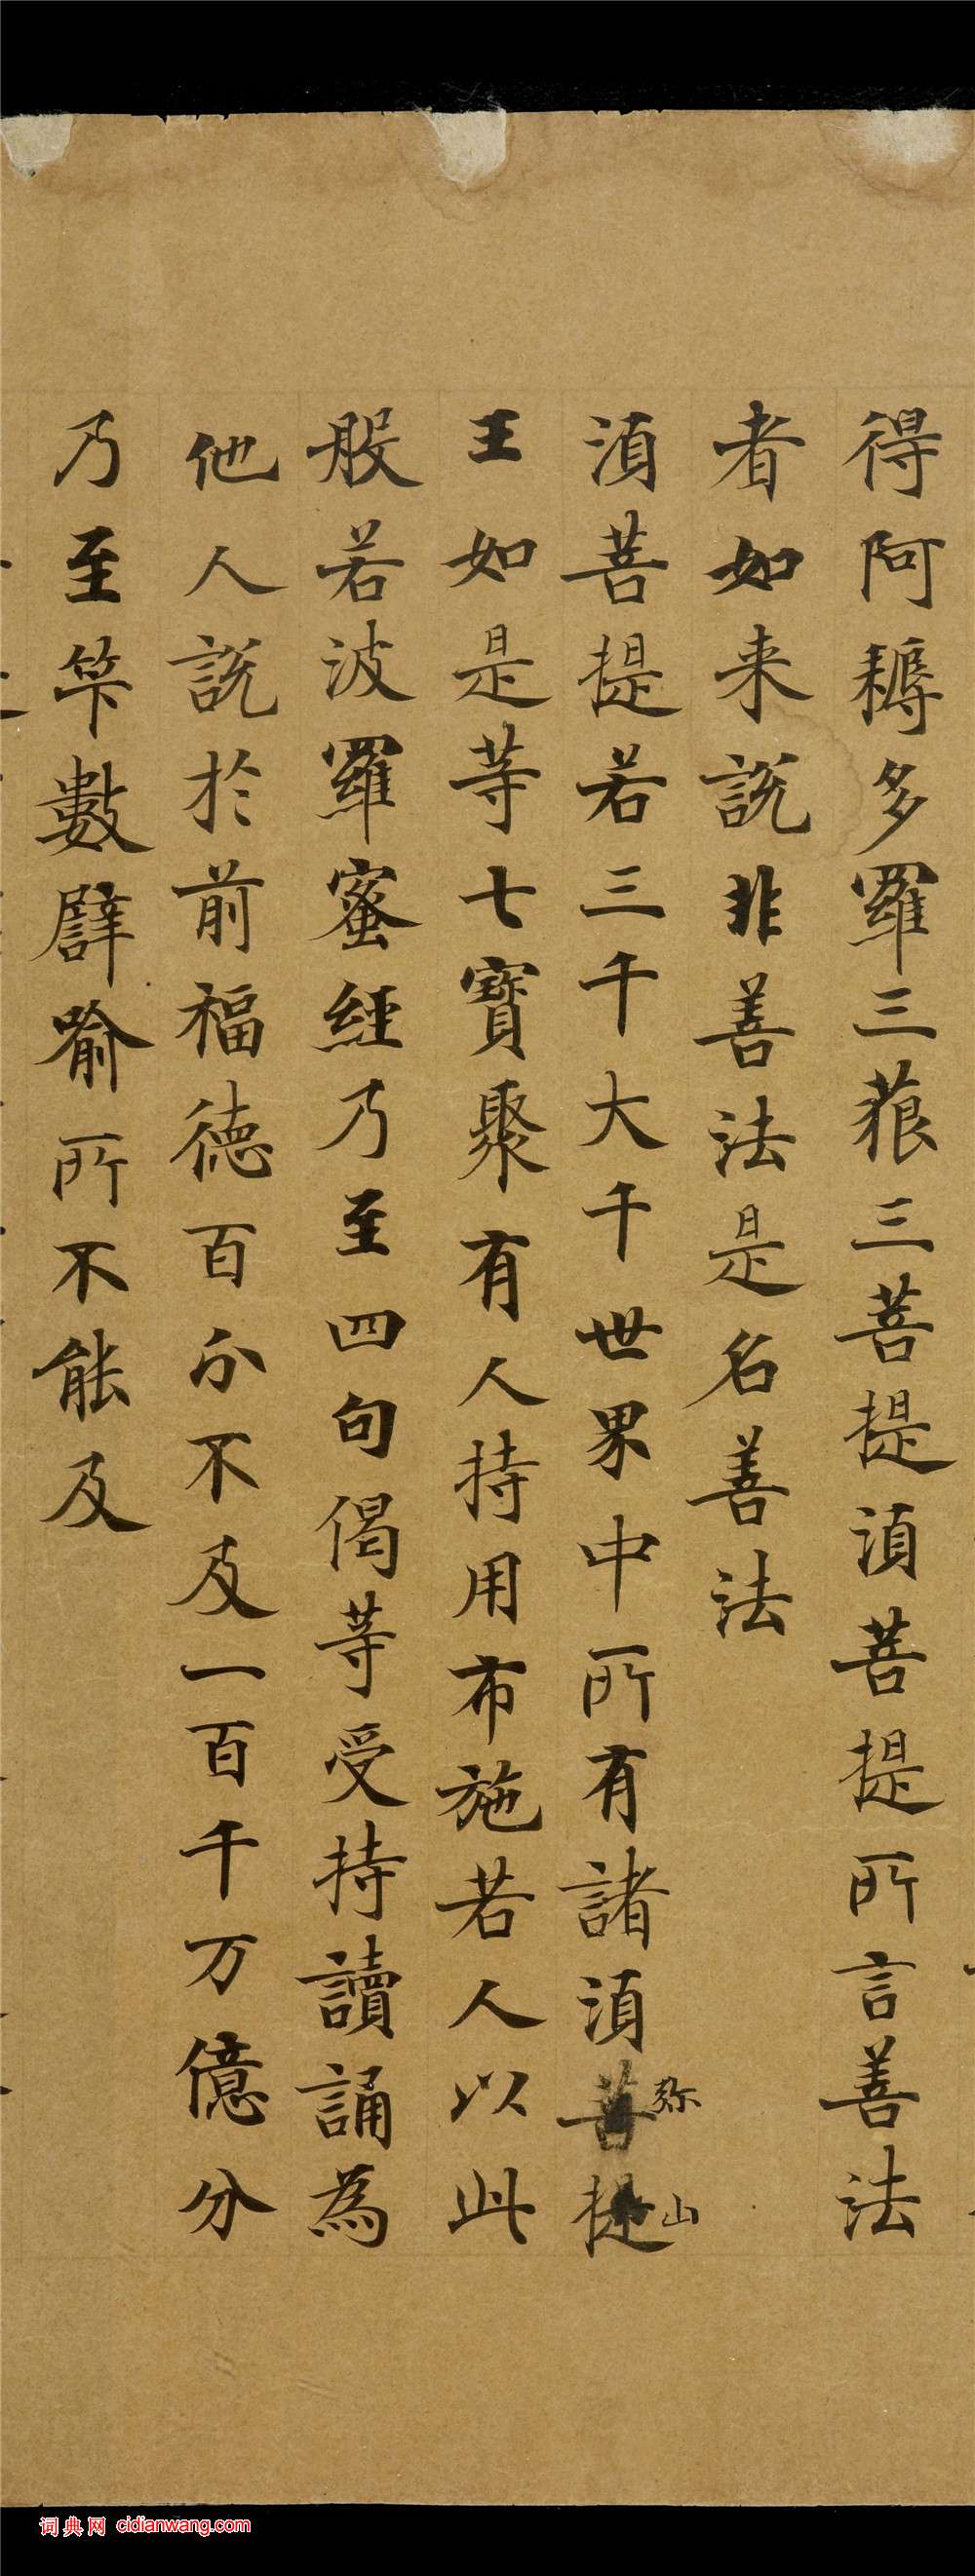 得阿耨多羅三藐三菩提須菩提所言善法
者如来説非善法是名善法
須菩提若三千大千世界中所有諸須菩提
弥山
王如是等七寶聚有人持用布施若人以此
般若波羅蜜經乃至四句偈等受持讀誦為
他人説於前福德百分不及一百千万億分
乃至筭數譬喻所不能及
词典网 cidianwang.com